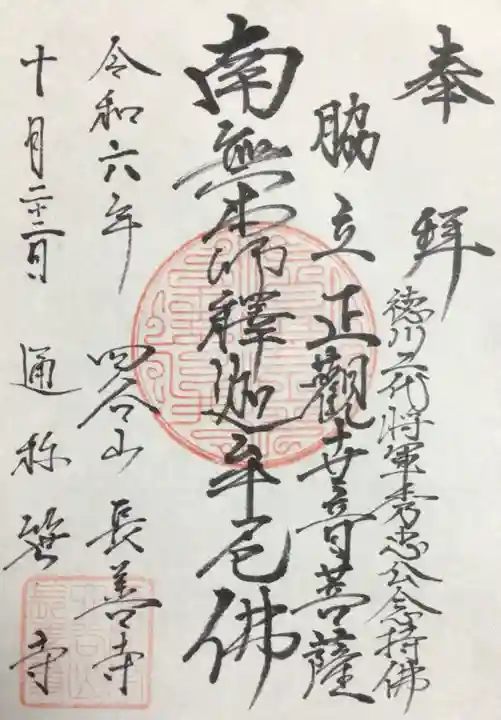 奉拜
徳川二代将軍秀忠公念持佛
脇立正觀世音菩薩
南無本師釋迦牟尼佛
令和六年 四谷山長善寺
十月二十二日 通称笹寺